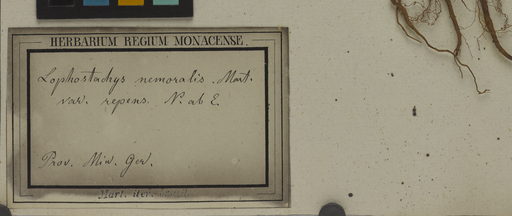 HERBARIUM REGIUM MONACENSE.
Lophostachys nemoralis. Mart.
var. repens. N. ab E.
Prov. Min. Ger.
Mart.